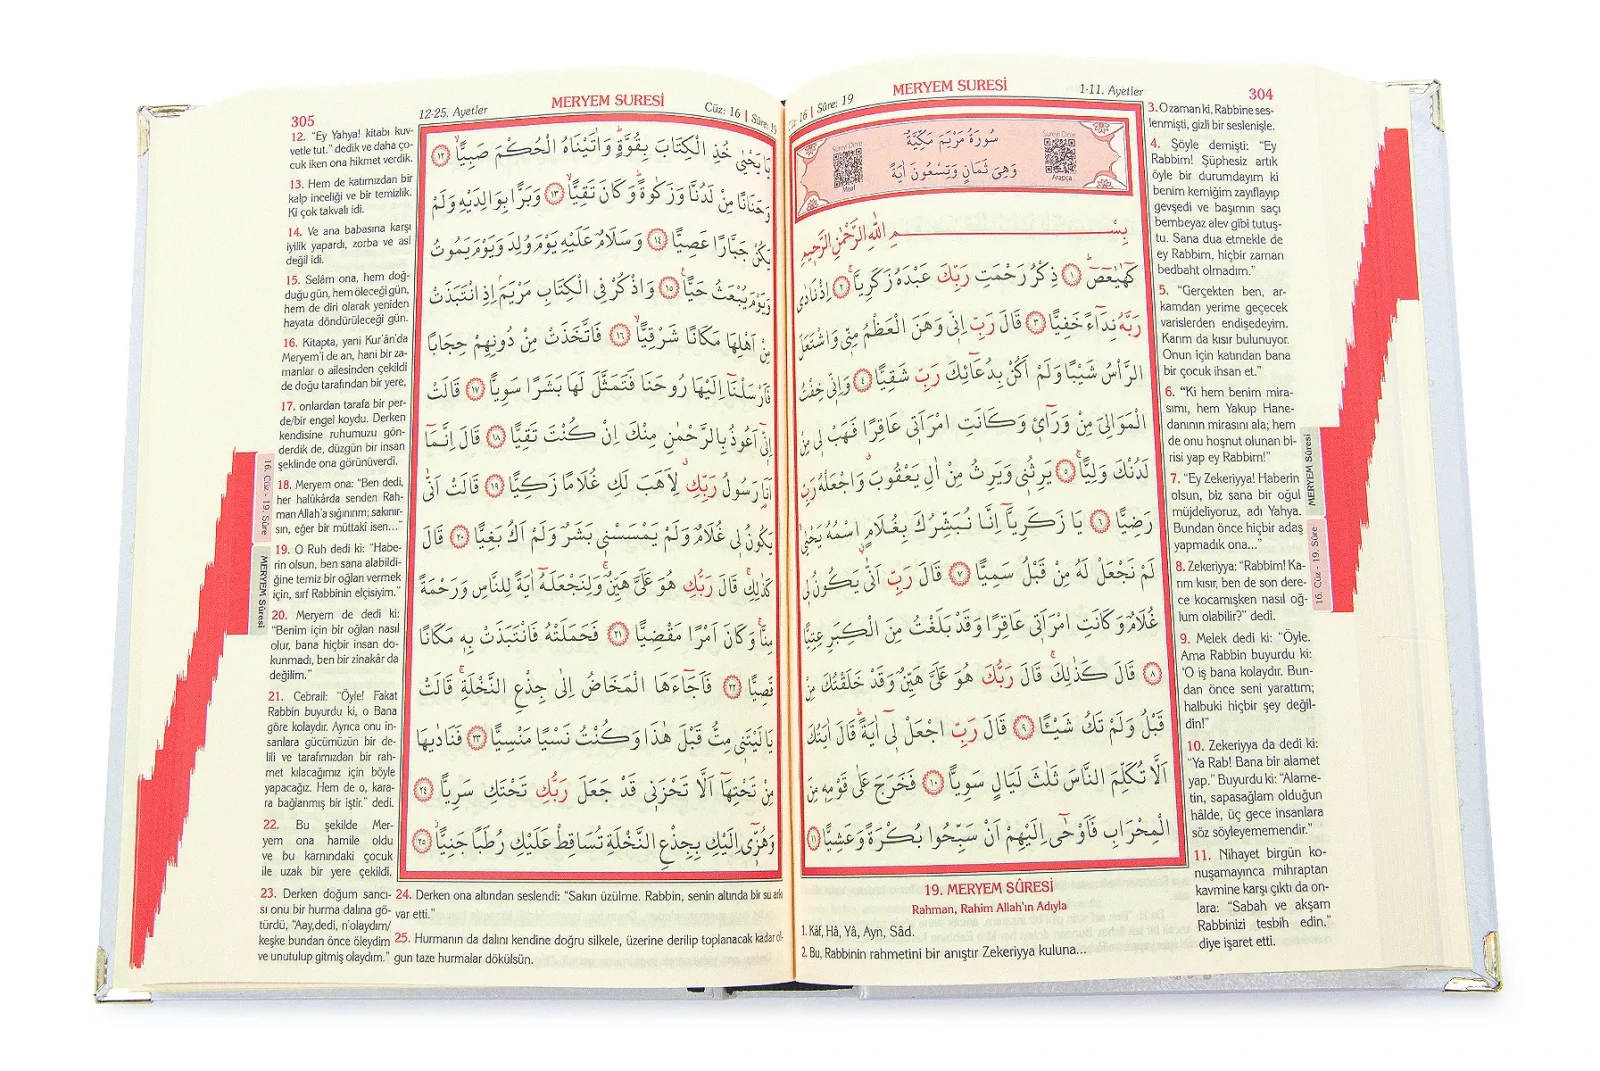 MERYEM SURESİ
1-11. Ayetler
304
Sûre: 19
سُورَةُ مَرْيَمَ مَكِّيَّةٌ
وَهِىَ ثَمَانٍ وَتِسْعُونَ اٰيَةً
Meal
Arapça
بِسْمِ اللّٰهِ الرَّحْمٰنِ الرَّحِيمِ
كٓهٰيٰعٓصٓ ﴿١﴾ ذِكْرُ رَحْمَتِ رَبِّكَ عَبْدَهُ زَكَرِيَّا ﴿٢﴾ اِذْ نَادٰى
رَبَّهُ نِدَٓاءً خَفِيًّا ﴿٣﴾ قَالَ رَبِّ اِنّ۪ى وَهَنَ الْعَظْمُ مِنّ۪ى وَاشْتَعَلَ
الرَّاْسُ شَيْبًا وَلَمْ اَكُنْ بِدُعَٓائِكَ رَبِّ شَقِيًّا ﴿٤﴾ وَاِنّ۪ى خِفْتُ
الْمَوَالِىَ مِنْ وَرَٓاء۪ى وَكَانَتِ امْرَاَت۪ى عَاقِرًا فَهَبْ ل۪ى مِنْ
لَدُنْكَ وَلِيًّا ﴿٥﴾ يَرِثُن۪ى وَيَرِثُ مِنْ اٰلِ يَعْقُوبَ وَاجْعَلْهُ رَبِّ
رَضِيًّا ﴿٦﴾ يَا زَكَرِيَّٓا اِنَّا نُبَشِّرُكَ بِغُلَامٍ اسْمُهُ يَحْيٰى
لَمْ نَجْعَلْ لَهُ مِنْ قَبْلُ سَمِيًّا ﴿٧﴾ قَالَ رَبِّ اَنّٰى يَكُونُ ل۪ى
غُلَامٌ وَكَانَتِ امْرَاَت۪ى عَاقِرًا وَقَدْ بَلَغْتُ مِنَ الْكِبَرِ عِتِيًّا
﴿٨﴾ قَالَ كَذٰلِكَ قَالَ رَبُّكَ هُوَ عَلَىَّ هَيِّنٌ وَقَدْ خَلَقْتُكَ مِنْ
قَبْلُ وَلَمْ تَكُ شَيْئًا ﴿٩﴾ قَالَ رَبِّ اجْعَلْ ل۪ٓى اٰيَةً قَالَ اٰيَتُكَ
اَلَّا تُكَلِّمَ النَّاسَ ثَلٰثَ لَيَالٍ سَوِيًّا ﴿١٠﴾ فَخَرَجَ عَلٰى قَوْمِه۪ مِنَ
الْمِحْرَابِ فَاَوْحٰٓى اِلَيْهِمْ اَنْ سَبِّحُوا بُكْرَةً وَعَشِيًّا ﴿١١﴾
19. MERYEM SÛRESİ
Rahman, Rahim Allah'ın Adıyla
1. Kâf, Hâ, Yâ, Ayn, Sâd.
2. Bu, Rabbinin rahmetini bir anıştır Zekeriyya kuluna...
3. O zaman ki, Rabbine ses-
lenmişti, gizli bir seslenişle.
4. Şöyle demişti: "Ey
Rabbim! Şüphesiz artık
öyle bir durumdayım ki
benim kemiğim zayıflayıp
gevşedi ve başımın saçı
bembeyaz alev gibi tutuş-
tu. Sana dua etmekle de
ey Rabbim, hiçbir zaman
bedbaht olmadım."
5. "Gerçekten ben, ar-
kamdan yerime geçecek
varislerden endişedeyim.
Karım da kısır bulunuyor.
Onun için katından bana
bir çocuk ihsan et."
6. "Ki hem benim mira-
sımı, hem Yakup Hane-
danının mirasını ala; hem
de onu hoşnut olunan bi-
risi yap ey Rabbim!"
7. "Ey Zekeriyya! Haberin
olsun, biz sana bir oğul
müjdeliyoruz, adı Yahya.
Bundan önce hiçbir adaş
yapmadık ona..."
8. Zekeriyya: "Rabbim! Ka-
rım kısır, ben de son dere-
ce kocamışken nasıl oğ-
lum olabilir?" dedi.
9. Melek dedi ki: "Öyle.
Ama Rabbin buyurdu ki:
'O iş bana kolaydır. Bun-
dan önce seni yarattım;
halbuki hiçbir şey değil-
din!"
10. Zekeriyya da dedi ki:
"Ya Rab! Bana bir alamet
yap." Buyurdu ki: "Alame-
tin, sapasağlam olduğun
hâlde, üç gece insanlara
söz söyleyememendir."
11. Nihayet birgün ko-
nuşamayınca mihraptan
kavmine karşı çıktı da on-
lara: "Sabah ve akşam
Rabbinizi tesbih edin."
diye işaret etti.
MERYEM Sûresi
16. Cüz - 19. Sûre
305
12-25. Ayetler
MERYEM SURESİ
Cüz: 16 | Sûre: 19
يَا يَحْيٰى خُذِ الْكِتَابَ بِقُوَّةٍ وَاٰتَيْنَاهُ الْحُكْمَ صَبِيًّا ﴿١٢﴾
وَحَنَانًا مِنْ لَدُنَّا وَزَكٰوةً وَكَانَ تَقِيًّا ﴿١٣﴾ وَبَرًّا بِوَالِدَيْهِ وَلَمْ
يَكُنْ جَبَّارًا عَصِيًّا ﴿١٤﴾ وَسَلَامٌ عَلَيْهِ يَوْمَ وُلِدَ وَيَوْمَ يَمُوتُ
وَيَوْمَ يُبْعَثُ حَيًّا ﴿١٥﴾ وَاذْكُرْ فِى الْكِتَابِ مَرْيَمَ اِذِ انْتَبَذَتْ
مِنْ اَهْلِهَا مَكَانًا شَرْقِيًّا ﴿١٦﴾ فَاتَّخَذَتْ مِنْ دُونِهِمْ حِجَابًا
فَاَرْسَلْنَٓا اِلَيْهَا رُوحَنَا فَتَمَثَّلَ لَهَا بَشَرًا سَوِيًّا ﴿١٧﴾ قَالَتْ
اِنّ۪ٓى اَعُوذُ بِالرَّحْمٰنِ مِنْكَ اِنْ كُنْتَ تَقِيًّا ﴿١٨﴾ قَالَ اِنَّمَٓا
اَنَا رَسُولُ رَبِّكِ لِاَهَبَ لَكِ غُلَامًا زَكِيًّا ﴿١٩﴾ قَالَتْ اَنّٰى
يَكُونُ ل۪ى غُلَامٌ وَلَمْ يَمْسَسْن۪ى بَشَرٌ وَلَمْ اَكُ بَغِيًّا ﴿٢٠﴾ قَالَ
كَذٰلِكِ قَالَ رَبُّكِ هُوَ عَلَىَّ هَيِّنٌ وَلِنَجْعَلَهُٓ اٰيَةً لِلنَّاسِ وَرَحْمَةً
مِنَّا وَكَانَ اَمْرًا مَقْضِيًّا ﴿٢١﴾ فَحَمَلَتْهُ فَانْتَبَذَتْ بِه۪ مَكَانًا
قَصِيًّا ﴿٢٢﴾ فَاَجَٓاءَهَا الْمَخَاضُ اِلٰى جِذْعِ النَّخْلَةِ قَالَتْ
يَا لَيْتَن۪ى مِتُّ قَبْلَ هٰذَا وَكُنْتُ نَسْيًا مَنْسِيًّا ﴿٢٣﴾ فَنَادٰيهَا
مِنْ تَحْتِهَٓا اَلَّا تَحْزَن۪ى قَدْ جَعَلَ رَبُّكِ تَحْتَكِ سَرِيًّا ﴿٢٤﴾
وَهُزّ۪ٓى اِلَيْكِ بِجِذْعِ النَّخْلَةِ تُسَاقِطْ عَلَيْكِ رُطَبًا جَنِيًّا ﴿٢٥﴾
12. "Ey Yahya! kitabı kuv-
vetle tut." dedik ve daha ço-
cuk iken ona hikmet verdik.
13. Hem de katımızdan bir
kalp inceliği ve bir temizlik.
Ki çok takvalı idi.
14. Ve ana babasına karşı
iyilik yapardı, zorba ve asi
değil idi.
15. Selâm ona, hem doğ-
duğu gün, hem öleceği gün,
hem de diri olarak yeniden
hayata döndürüleceği gün.
16. Kitapta, yani Kur'ân'da
Meryem'i de an, hani bir za-
manlar o ailesinden çekildi
de doğu tarafından bir yere,
17. onlardan tarafa bir per-
de/bir engel koydu. Derken
kendisine ruhumuzu gön-
derdik de, düzgün bir insan
şeklinde ona görünüverdi.
18. Meryem ona: "Ben dedi,
her halükârda senden Rah-
man Allah'a sığınırım; sakınır-
sın, eğer bir müttakî isen..."
19. O Ruh dedi ki: "Habe-
rin olsun, ben sana alabildi-
ğine temiz bir oğlan vermek
için, sırf Rabbinin elçisiyim."
20. Meryem de dedi ki:
"Benim için bir oğlan nasıl
olur, bana hiçbir insan do-
kunmadı, ben bir zinakâr da
değilim."
21. Cebrail: "Öyle! Fakat
Rabbin buyurdu ki, o Bana
göre kolaydır. Ayrıca onu in-
sanlara gücümüzün bir de-
lili ve tarafımızdan bir rah-
met kılacağımız için böyle
yapacağız. Hem de o, kara-
ra bağlanmış bir iştir." dedi.
22. Bu şekilde Mer-
yem ona hamile oldu
ve bu karnındaki çocuk
ile uzak bir yere çekildi.
23. Derken doğum sancı-
sı onu bir hurma dalına gö-
türdü, "Aay,dedi, n'olaydım/
keşke bundan önce öleydim
ve unutulup gitmiş olaydım."
24. Derken ona altından seslendi: "Sakın üzülme. Rabbin, senin altında bir su arkı
var etti."
25. Hurmanın da dalını kendine doğru silkele, üzerine derilip toplanacak kadar ol-
gun taze hurmalar dökülsün.
16. Cüz - 19. Sûre
MERYEM Sûresi